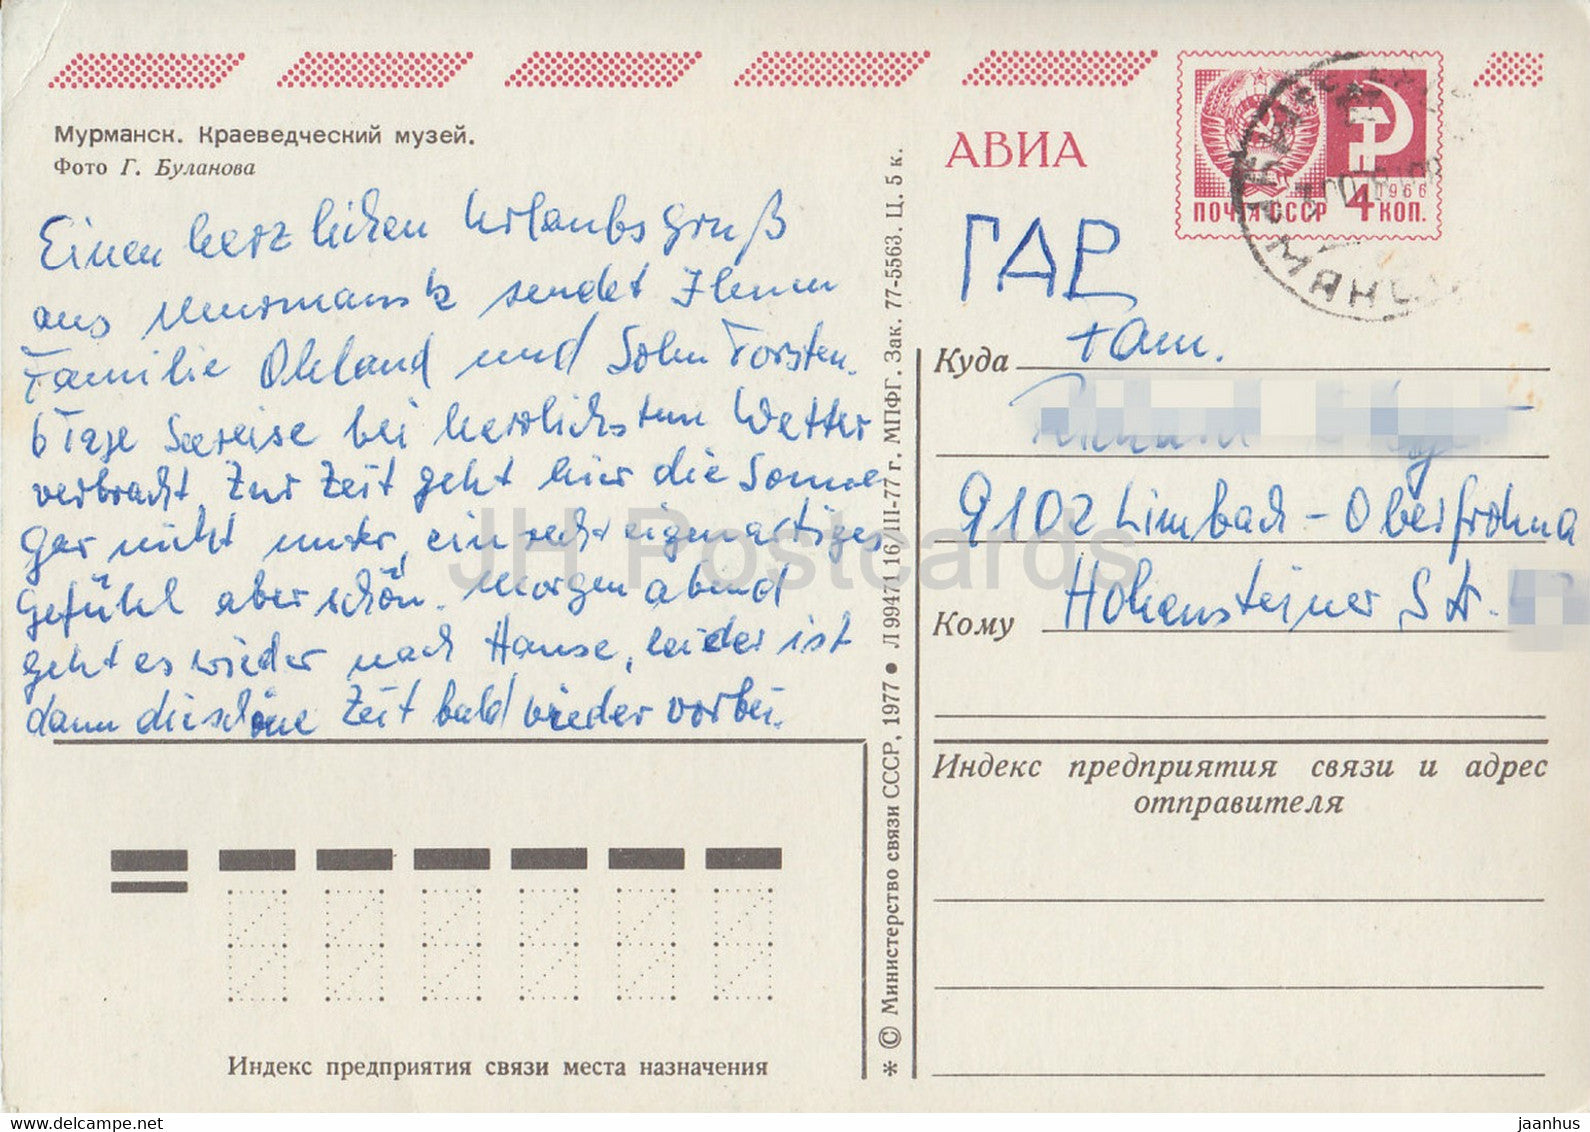 Мурманск. Краеведческий музей.
Фото Г. Буланова
Einen herzlichen Urlaubsgruß
aus Murmansk sendet Ihnen
Familie Ohland und Sohn Torsten.
6 Tage Seereise bei herrlichstem Wetter
verbracht. Zur Zeit geht hier die Sonne
gar nicht unter, ein recht eigenartiges
Gefühl aber schön. Morgen abend
geht es wieder nach Hause, leider ist
dann die schöne Zeit bald wieder vorbei.
Индекс предприятия связи места назначения
* © Министерство связи СССР, 1977 • Л 99471 16/III-77 г. МПФГ. Зак. 77-5563. Ц. 5 к.
АВИА
ПОЧТА СССР 4 КОП.
1966
ГДР
Куда
Fam.
9102 Limbach - Oberfrohna
Кому
Hohensteiner Str.
Индекс предприятия связи и адрес
отправителя
JH Postcards
www.delcampe.net
jaanhus